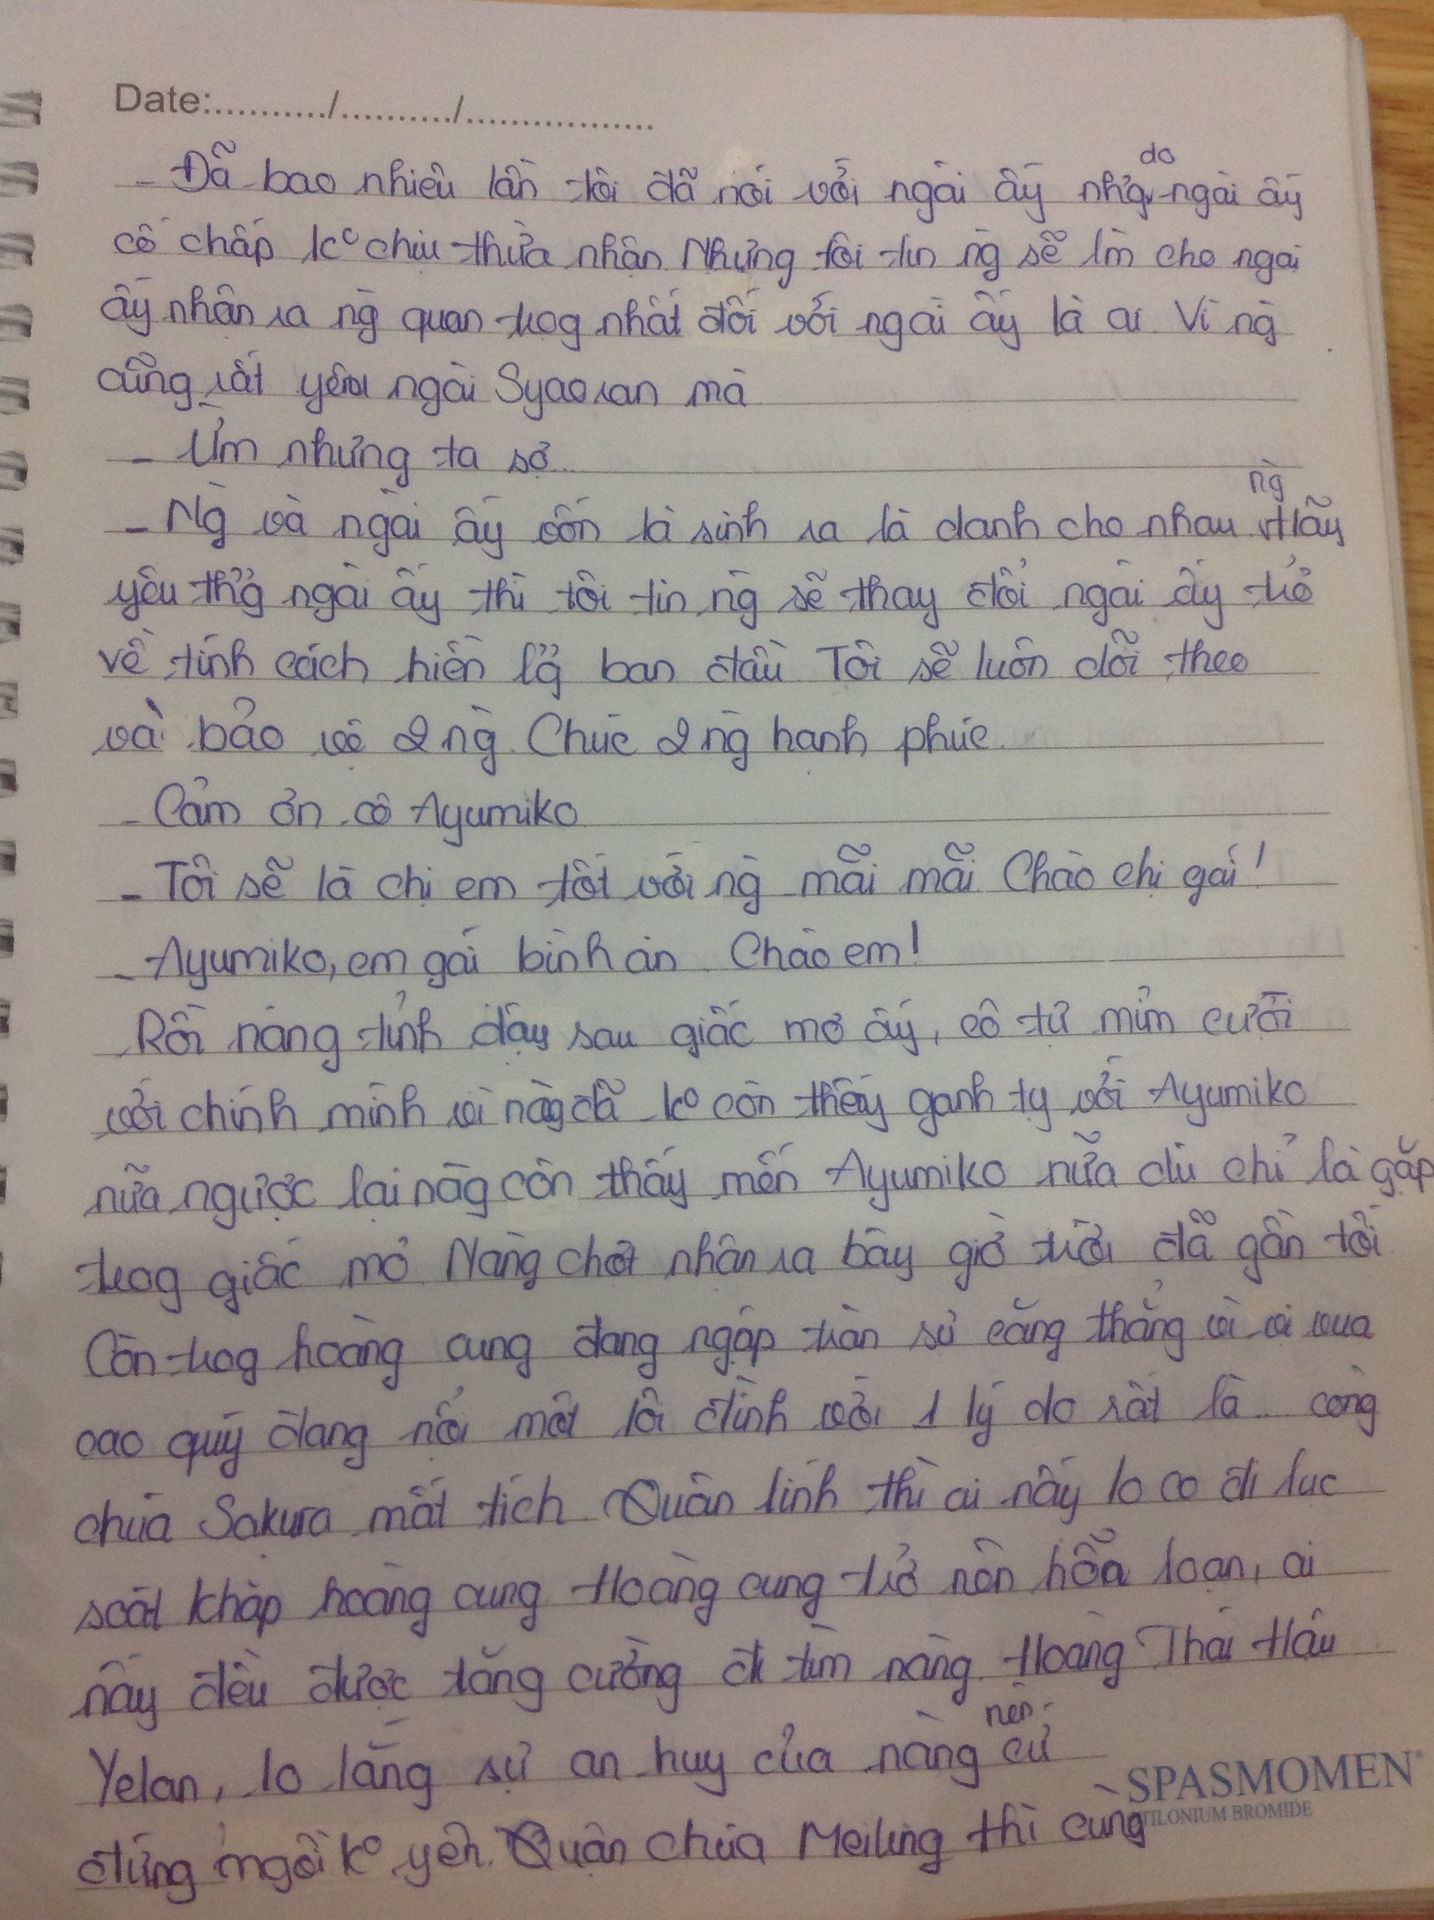 Date:........../........../.................
- Đã bao nhiêu lần tôi đã nói với ngài ấy nhưg do ngài ấy
cố chấp k° chịu thừa nhận. Nhưng tôi tin ng sẽ lm cho ngài
ấy nhận ra ng quan trog nhất đối với ngài ấy là ai Vì ng
cũng rất yêu ngài Syaoran mà
- Ừm nhưng ta sợ
- Ng và ngài ấy vốn là sinh ra là dành cho nhau ng Hãy
yêu thưg ngài ấy thì tôi tin ng sẽ thay đổi ngài ấy trở
về tính cách hiền lg ban đầu Tôi sẽ luôn dõi theo
và bảo vệ 2 ng. Chúc 2 ng hạnh phúc
- Cảm ơn cô Ayumiko
- Tôi sẽ là chị em tốt với ng mãi mãi Chào chị gái!
- Ayumiko, em gái bình an. Chào em!
Rồi nàng tỉnh dậy sau giấc mơ ấy, cô tự mỉm cười
với chính mình vì nàg đã k° còn thấy ganh tỵ với Ayumiko
nữa ngược lại nàg còn thấy mến Ayumiko nữa dù chỉ là gặp
trog giấc mơ Nàng chợt nhận ra bây giờ trời đã gần tối
Còn trog hoàng cung đang ngập tràn sự căng thẳng vì vị vua
cao quý đang nổi một lôi đình với 1 lý do rất là... công
chúa Sakura mất tích. Quân lính thì ai nấy lo co đi lục
soát khắp hoàng cung Hoàng cung trở nên hỗn loạn, ai
nấy đều được tăng cường đi tìm nàng. Hoàng Thái Hậu
Yelan, lo lắng sự an huy của nàng nên cứ
đứng ngồi k° yên. Quận chúa Meiling thì cũng
SPASMOMEN®
TILONIUM BROMIDE